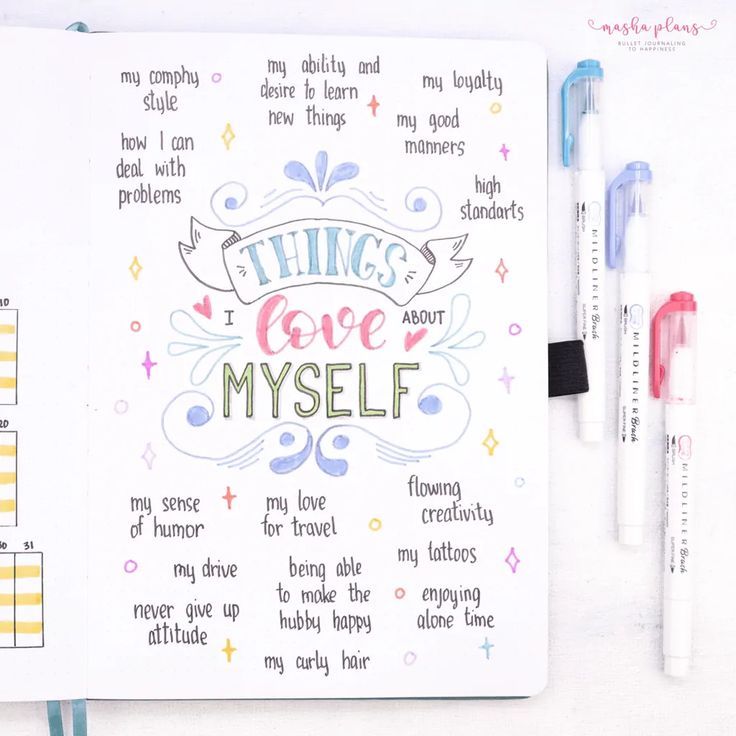 masha plans
BULLET JOURNALING
TO HAPPINESS
my comphy
style
my ability and
desire to learn
new things
my loyalty
how I can
deal with
problems
my good
manners
high
standarts
THINGS
I love ABOUT
MYSELF
my sense
of humor
my love
for travel
flowing
creativity
my drive
being able
to make the
hubby happy
my tattoos
never give up
attitude
enjoying
alone time
my curly hair
10
20
30 31
BRUSH
MILDLINER Brush
SUPER FINE
BRUSH
MILDLINER Brush
SUPER FINE
BRUSH
MILDLINER Brush
SUPER FINE